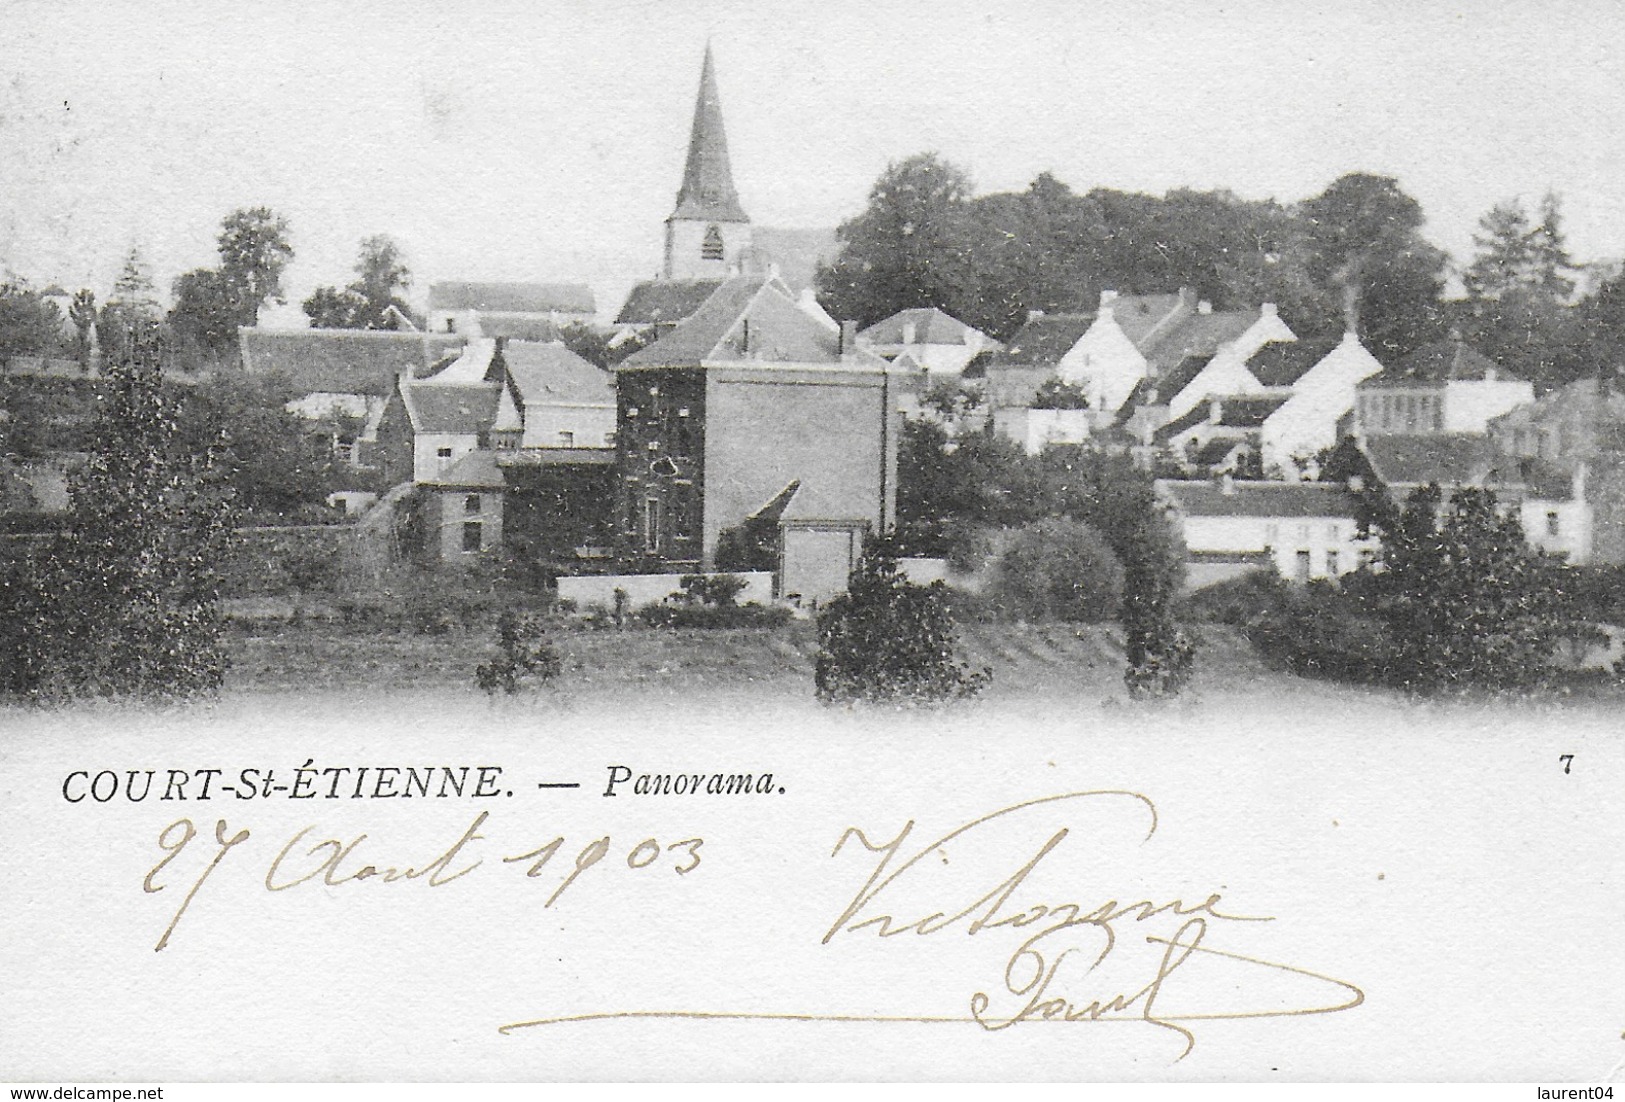 COURT-St-ÉTIENNE. — Panorama.
7
27 Aout 1903
Victorine
Paul
www.delcampe.net
laurent04